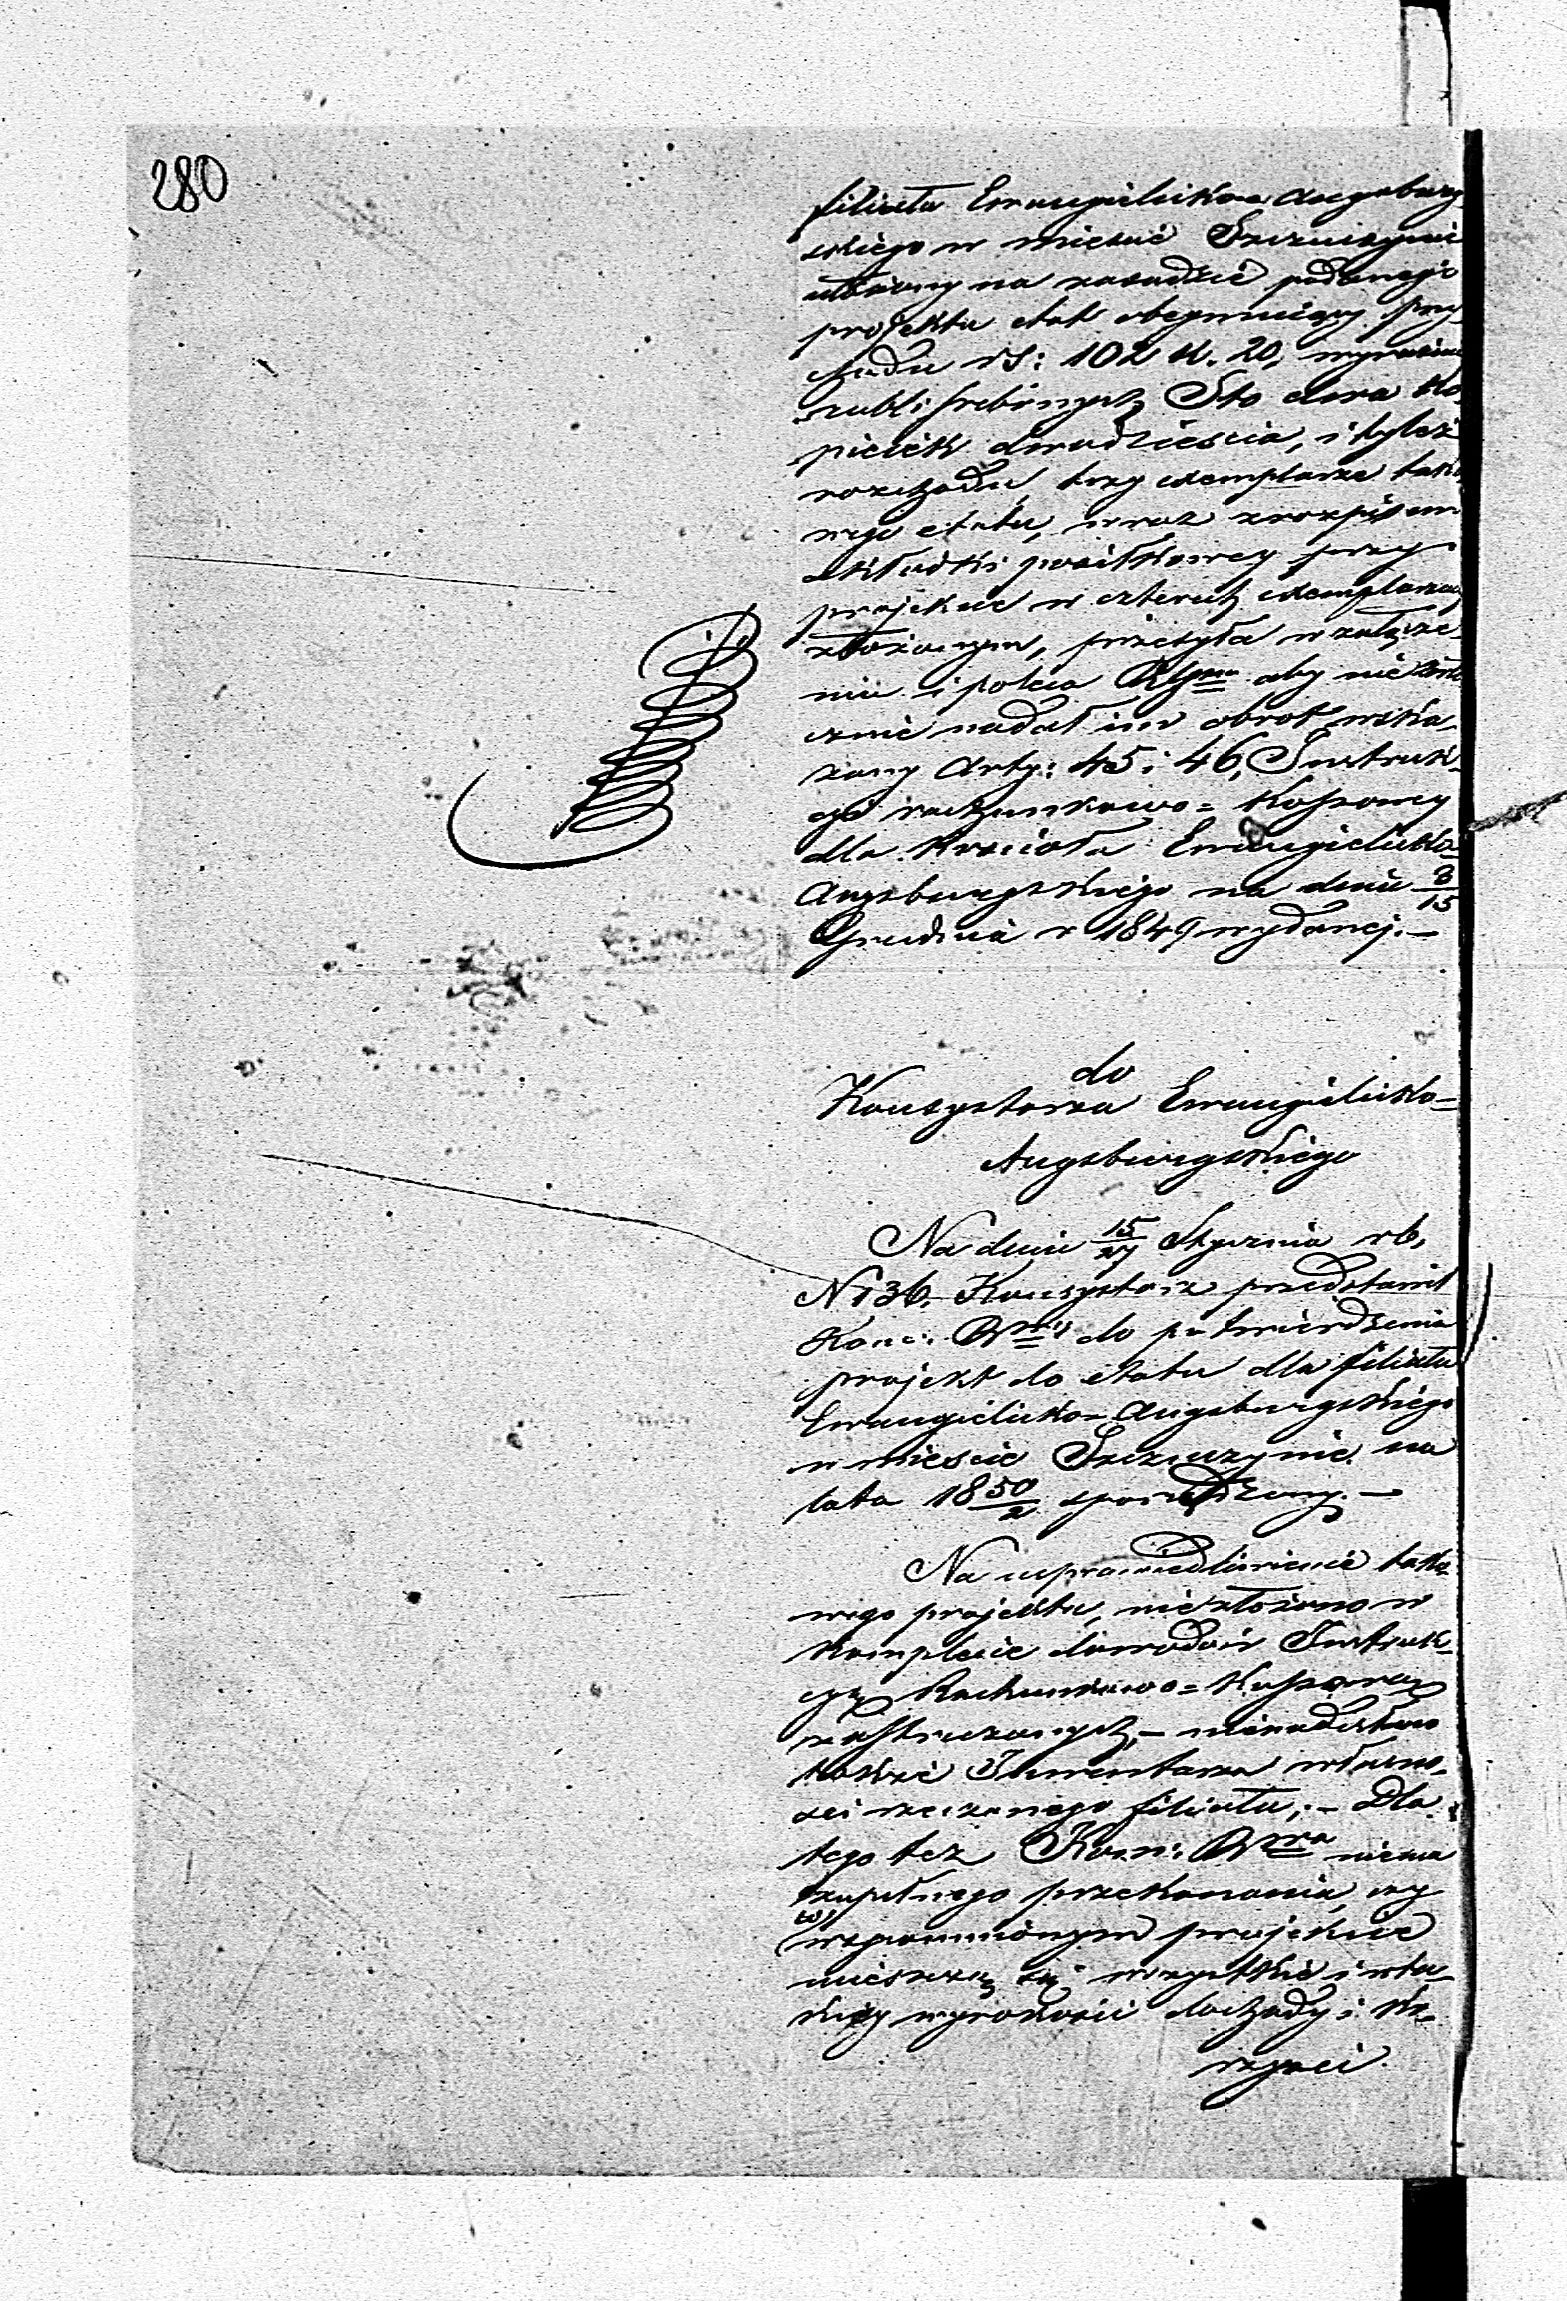 280
filiału Ewangielicko Augsburg
skiego w mieście Szczuczynie
ułożony na zasadzie podanego
projektu etat obejmujący przy
chodu rS: 102 k. 20, wyraźnie
rubli srebrnych Sto dwa ko
piejek dwadzieścia, i tyleż
rozchodu, trzy exemplarze tako
wego etatu, wraz z rozpisem
składki posiłkowej przy
projekcie w czterech exemplarzach
złożonym, przesyła w załącze
niu i poleca aby niezwło
cznie nadał im obrót wska
zany Arty: 45 i 46, Instruk
cyi rachunkowo = Kassowey
dla Kościoła Ewangielicko
Augsburgskiego na dniu 3/15
Grudnia r 1849 wydanej. —
do
Konsystorza Ewangielicko =
Augsburgskiego
Na dniu 15/27 Stycznia rb,
N 136, Konsystorz przedstawił
do potwierdzenia
projekt do etatu dla filiału
Ewangielicko = Augsburgskiego
w mieście Szczuczynie na
lata 1850/2 sporządzony. —
Na usprawiedliwienie tako
wego projektu, niezłożono w
komplecie dowodów Instruk
cyą Rachunkowo = Kassową
zastrzeżonych, — nienadesłano
także Inwentarza własno
ści rzeczonego filiału; — Dla
tego też Kom: niema
zupełnego przekonania czy
w wspomnionym projekcie
mieszczą się wszystkie i w ta
kiej wysokości dochody i ko
rzyści